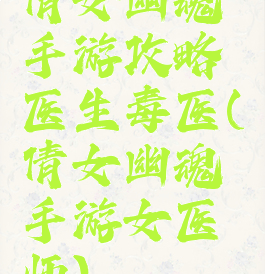 倩女幽魂
手游攻略
医生毒医(
倩女幽魂
手游女医
师)